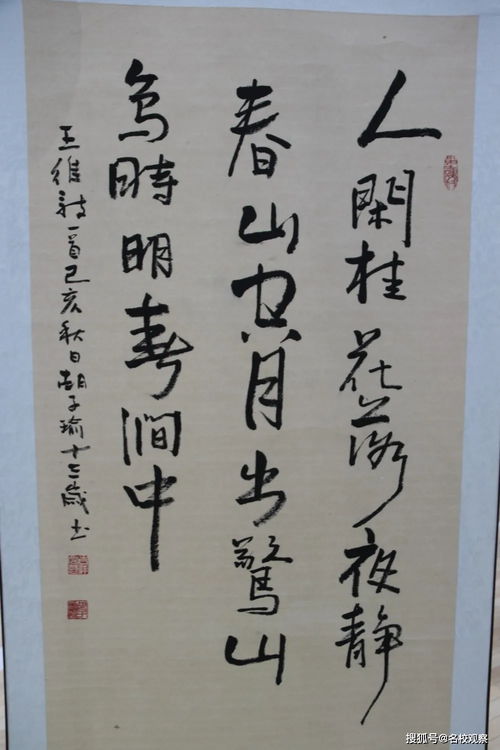 人閑桂花落夜静
春山空月出驚山
鳥時明春澗中
王維詩一首己亥秋日胡子瑜十歲书
搜狐号@名校观察